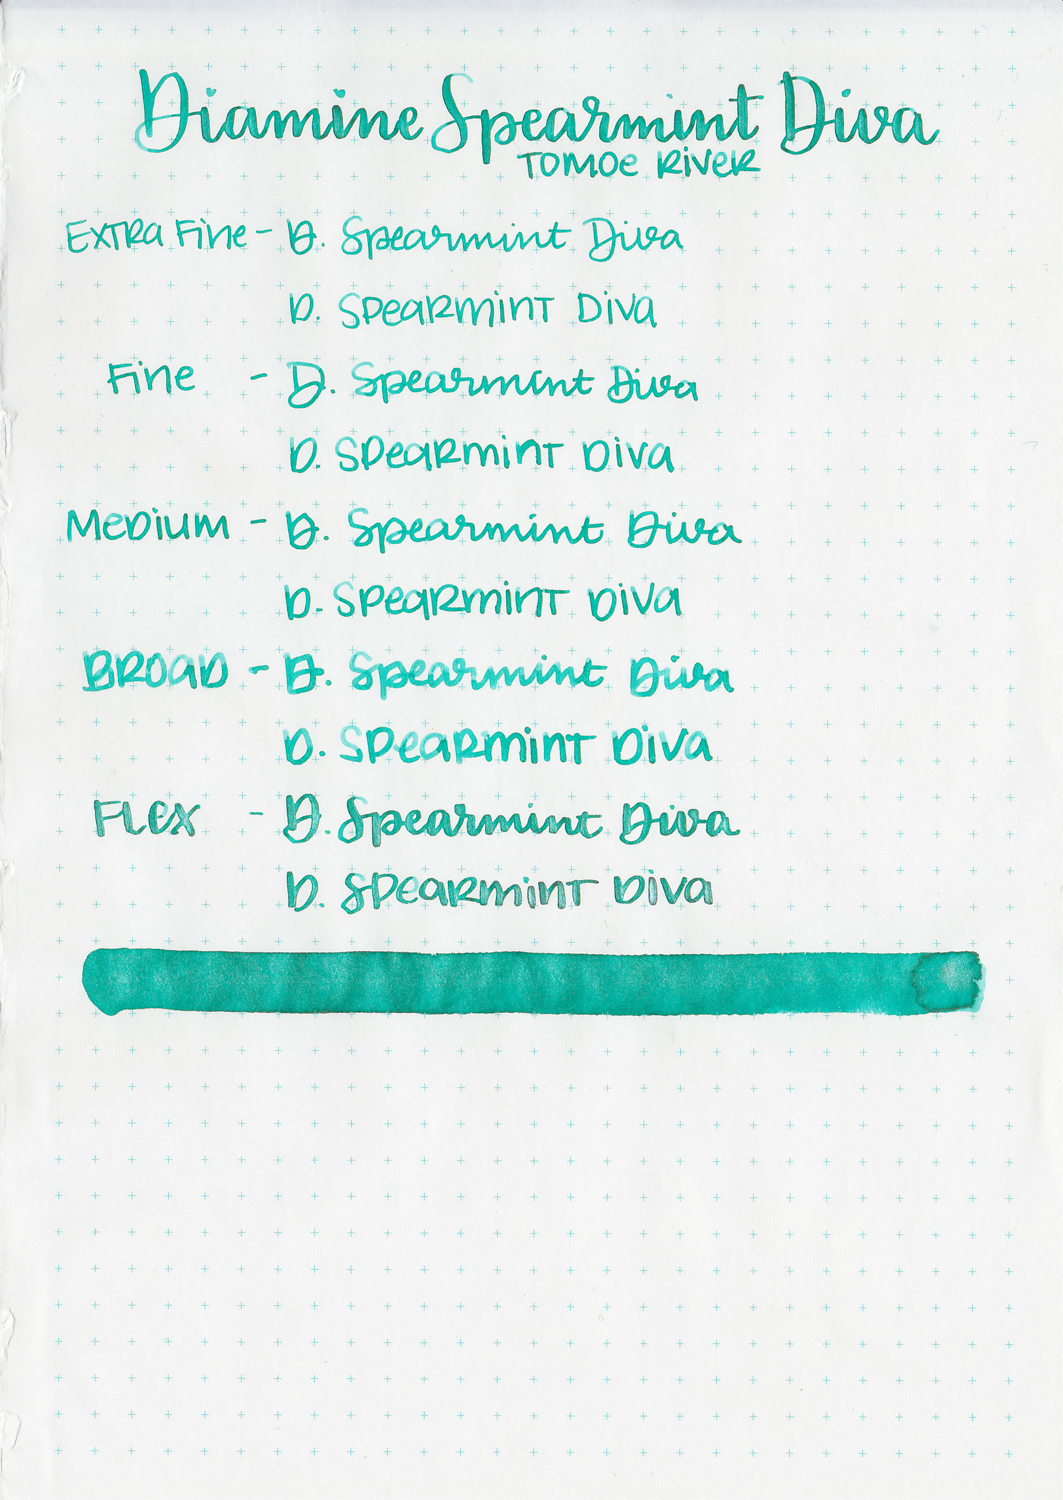 Diamine Spearmint Diva
Tomoe River
Extra Fine - D. Spearmint Diva
D. Spearmint Diva
Fine - D. Spearmint Diva
D. Spearmint Diva
Medium - D. Spearmint Diva
D. Spearmint Diva
Broad - D. Spearmint Diva
D. Spearmint Diva
Flex - D. Spearmint Diva
D. Spearmint Diva